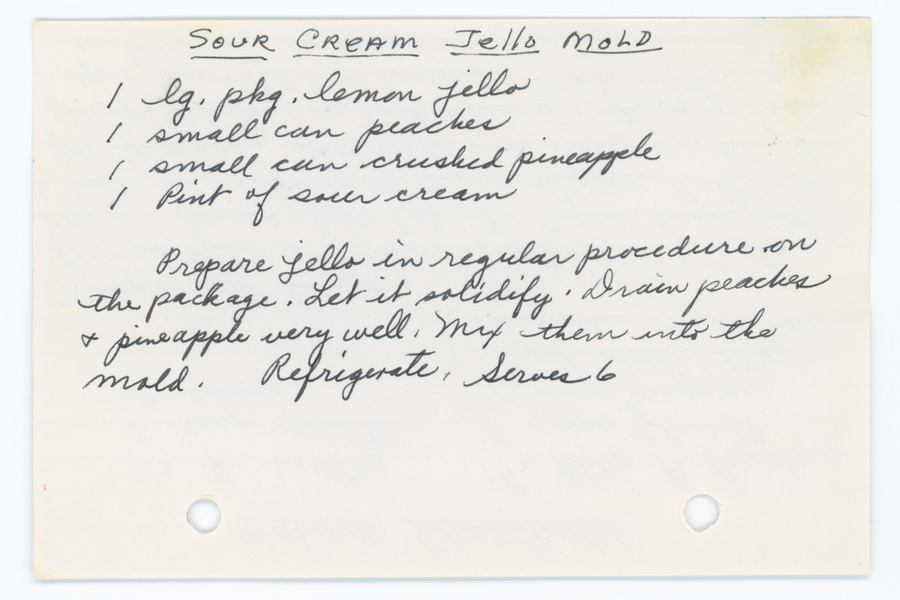 Sour Cream Jello Mold
1 lg. pkg. lemon jello
1 small can peaches
1 small can crushed pineapple
1 Pint of sour cream
Prepare jello in regular procedure on
the package. Let it solidify. Drain peaches
& pineapple very well. Mix them into the
mold. Refrigerate. Serves 6